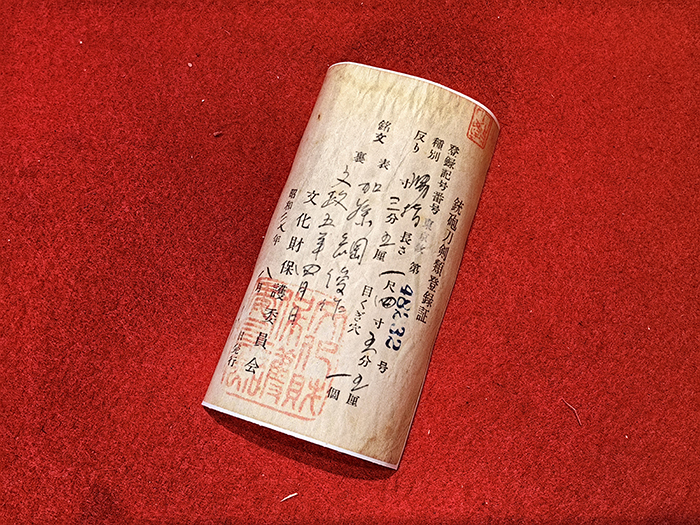 鉄砲刀剣類登録証
登録記号番号 東京都 第 48632 号
種別 脇指 長さ 一尺四寸五分五厘
反り 寸三分五厘 目くぎ穴 一個
銘文 表 加藤綱俊作
裏 文政五年四月日
文化財保護委員会
昭和二八年八月 日発行